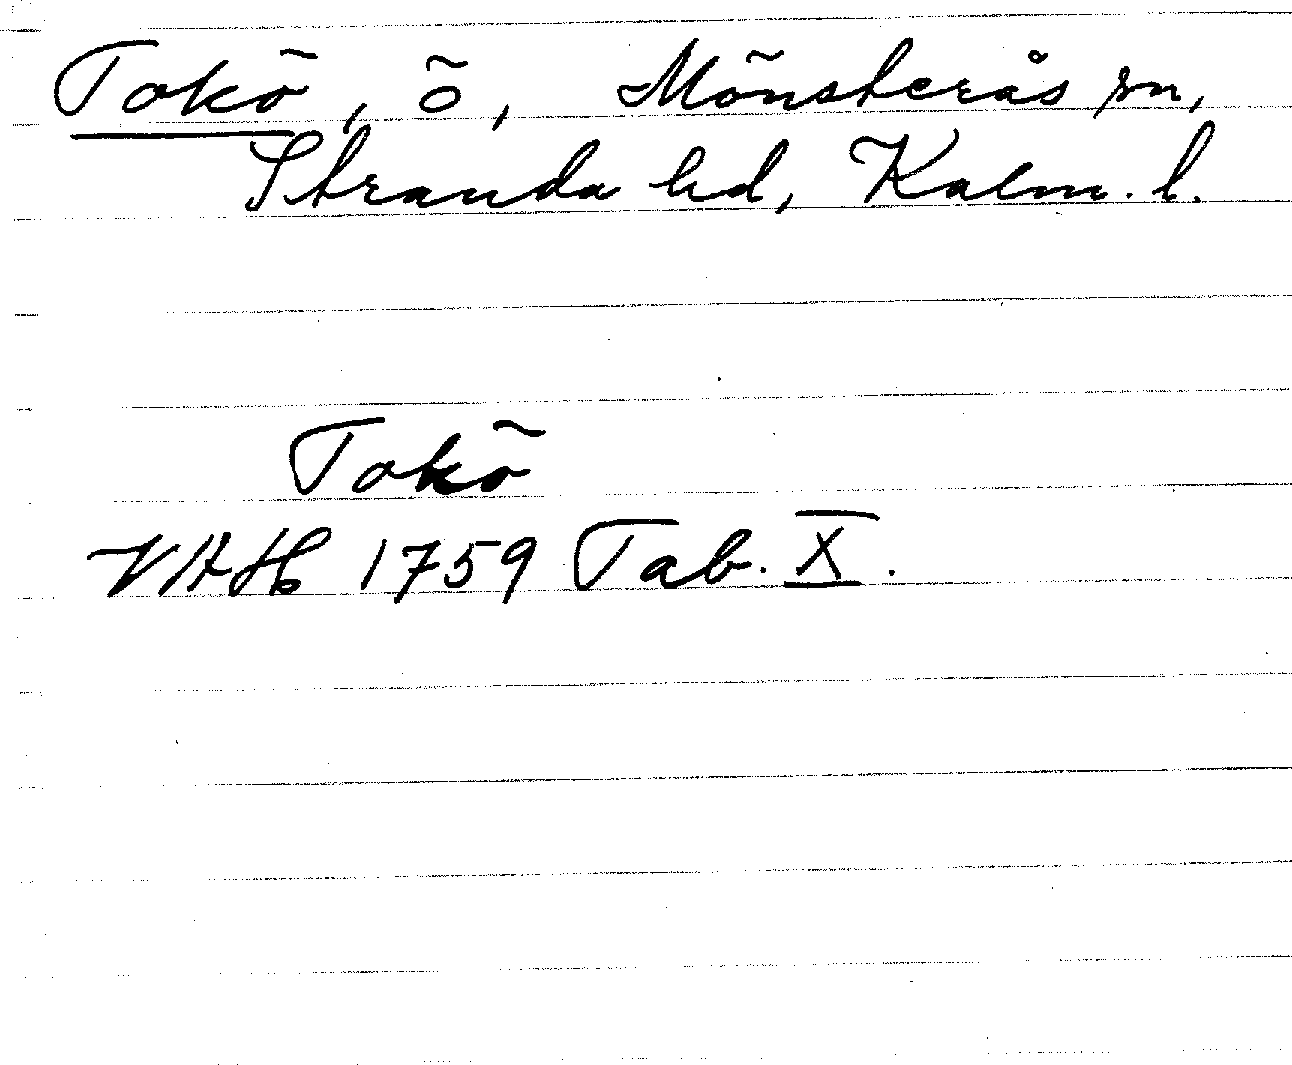 Tokö, ö, Mönsterås sn,
Stranda hd, Kalm. l.
Tokö
VAH 1759 Tab. X.